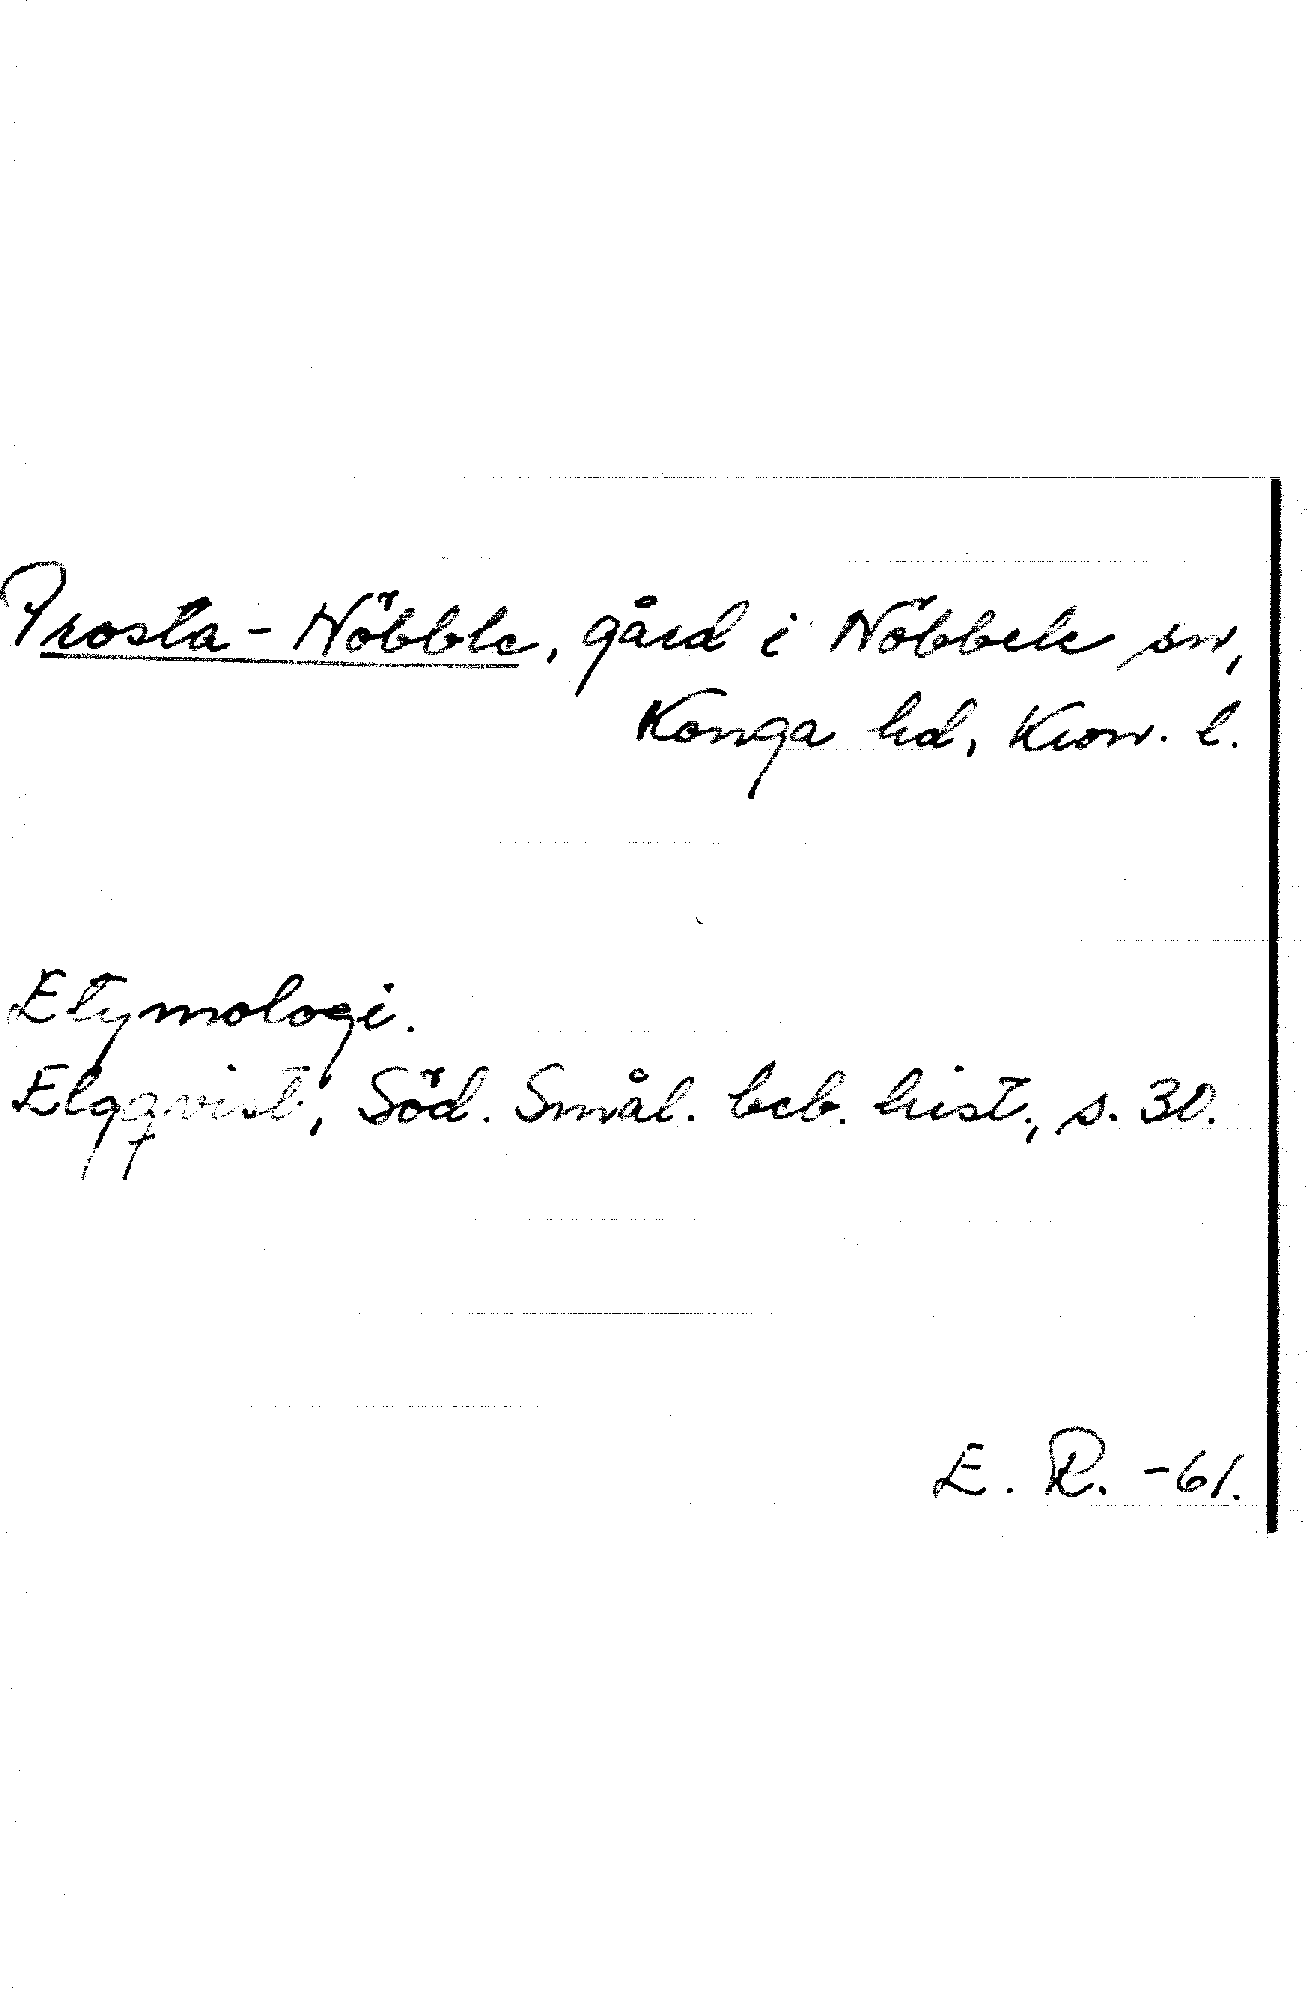 Prosta-Nöbble, gård i Nöbbele sn,
Konga hd, Kron. l.
Etymologi.
Elgqvist, Söd. Smål. beb. hist., s. 30.
E. R. -61.